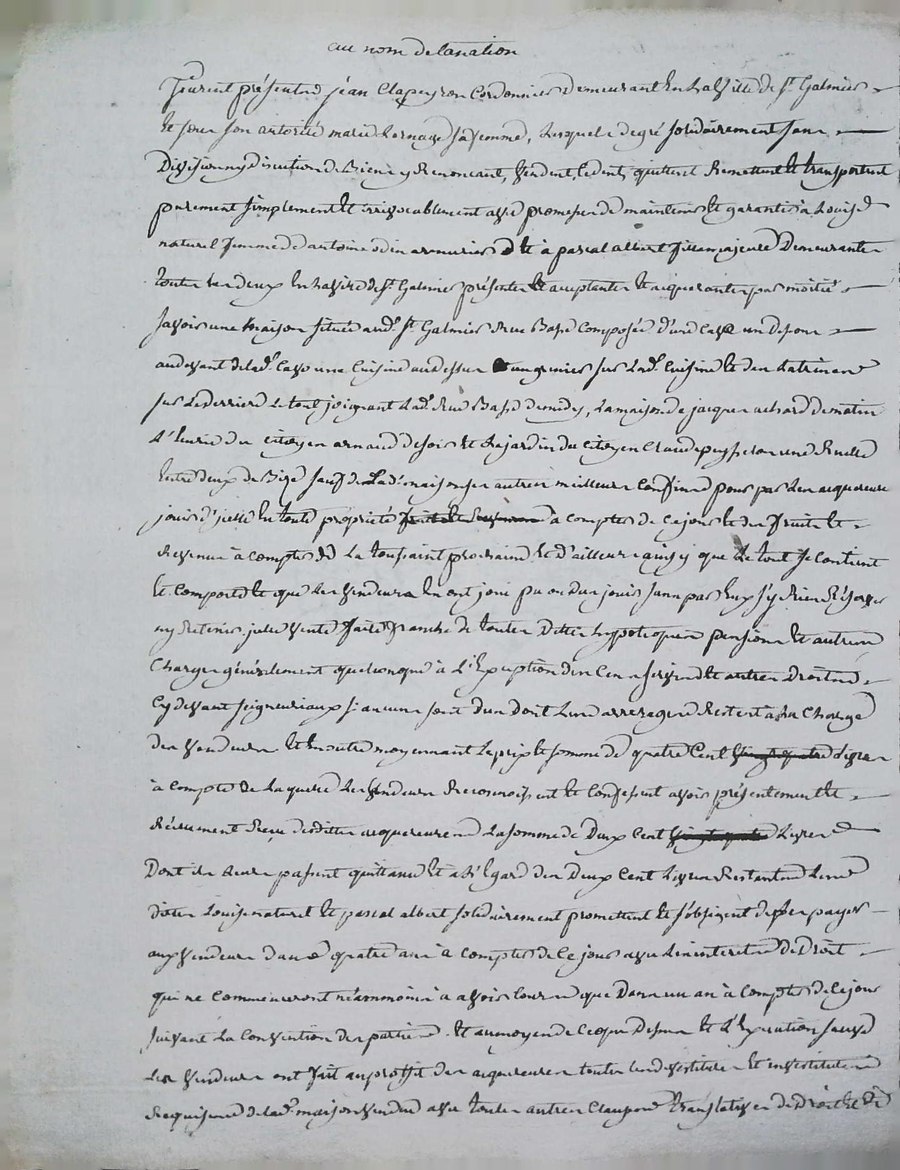 au nom de la nation
furent présents jean Clapeyron Cordonnier demeurant en la ville de St Galmier
et sous son autorité marie sa femme, lesquels de gré solidairement sans
Division ny discution de Biens y Renoncant, Vendent, Cedent, quittent Remettent et transportent
purement simplement et irrevocablement avec promesse de maintenir et garantir à Louise
naturel femme de antoine odin armurier et à pascal albert fille majeure Demeurantes
toutes les deux en la ville de St Galmier présentes et acceptantes et acquerantes par moitié
savoir une maison située aud. St Galmier Rue Basse Composée d'une Cave un
audevant de lad. Cave une Cuisine audessus un grenier sur lad. Cuisine et des Latrines
sur le derriere le tout joignant lad. Rue Basse de midy, la maison de jacques achard de matin
L'ecurie du Citoyen arnaud de soir et le jardin du Citoyen Claude une Ruelle
entre deux de Bize sauf de lad. maison ses autres meilleurs Confins pour par les acquereures
jouir d'icelle en toute propriété fruits et Revenus à compter de ce jour et des fruits et
Revenus à compter de la toussaint prochaine et d'ailleurs ainsy que le tout se Contient
et Comporte et que les Vendeurs en ont joui pu ou du jouir sans par Eux s'y Rien Réserver
ny Retenir, icelle Vente faite franche de toutes Dettes hypoteques pensions et autres
Charges généralement quelconques à l'Exception des Cens servis et autres Droits
Cy devant seigneuriaux si aucuns sont dus dont Les arrerages Restent à la Charge
des Vendeurs et en outre moyennant le prix et somme de quatre Cent Vingt quatre livres
à Compte de laquelle les Vendeurs Reconnoissent et Confessent avoir présentement et
Réellement Reçu desdittes acquereures la somme de Deux Cent Vingt quatre Livres
Dont ils leur passent quittance et à l'égard des Deux Cent Livres Restantes Les
dites Louise naturel et pascal albert solidairement promettent et s'obligent de les payer
aux Vendeurs dans quatre ans à compter de ce jour avec les interets de Droit
qui ne Commenceront néanmoins à avoir Cours que Dans un an à compter de ce jour
suivant la Convention des parties. et au moyen de ce que Dessus et l'Execution
Les Vendeurs ont fait au proffit des acquereures toutes les devestitures et investitures
Requises de lad. maison vendue avec toutes autres Clauses translatives de Droit et de